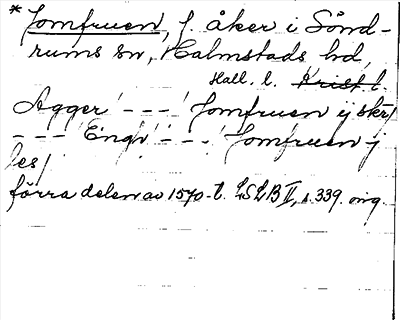 * Jomfruen, f. åker i Sönd-
rums sn, Halmstads hd,
Hall. l. Krist. l.
Agger' - - -' Jomfruen ij skr/
- - - 'Engr' - - -' Jomfruen j
les/
förra delen av 1570-t. LSLB II, s. 339. orig.